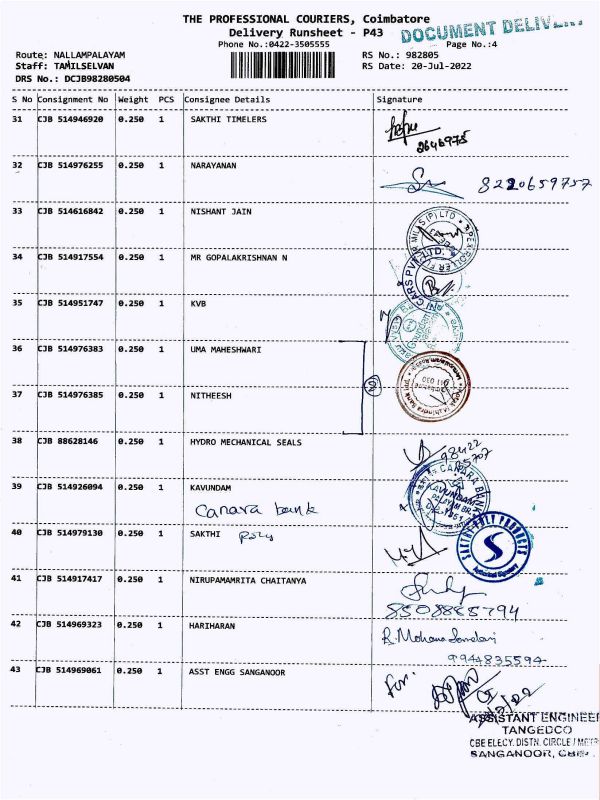 THE PROFESSIONAL COURIERS, Coimbatore
Delivery Runsheet - P43
DOCUMENT
Phone No.:0422-3505555
Page No.:4
Route: NALLAMPALAYAM
RS No.: 982805
Staff: TAMILSELVAN
RS Date: 20-Jul-2022
DRS No.: DCJB98280504
S No Consignment No Weight PCS Consignee Details Signature
31 CJB 514946920 0.250 1 SAKTHI TIMELERS
2646975
32 CJB 514976255 0.250 1 NARAYANAN
8220659757
33 CJB 514616842 0.250 1 NISHANT JAIN
34 CJB 514917554 0.250 1 MR GOPALAKRISHNAN N
CARS PVT. LTD.
35 CJB 514951747 0.250 1 KVB
36 CJB 514976383 0.250 1 UMA MAHESHWARI
37 CJB 514976385 0.250 1 NITHEESH
38 CJB 88628146 0.250 1 HYDRO MECHANICAL SEALS
39 CJB 514926094 0.250 1 KAVUNDAM
Canara bank
CANARA BANK
KAVUNDAM
PALAYAM BR.
40 CJB 514979130 0.250 1 SAKTHI poly
SAKTHY POLY PRODUCTS
S
41 CJB 514917417 0.250 1 NIRUPAMAMRITA CHAITANYA
8508885794
42 CJB 514969323 0.250 1 HARIHARAN
R. Mohana
9944835594
43 CJB 514969061 0.250 1 ASST ENGG SANGANOOR
For:
ASSISTANT ENGINEER
TANGEDCO
CBE ELECY. DISTN. CIRCLE / METR
SANGANOOR,